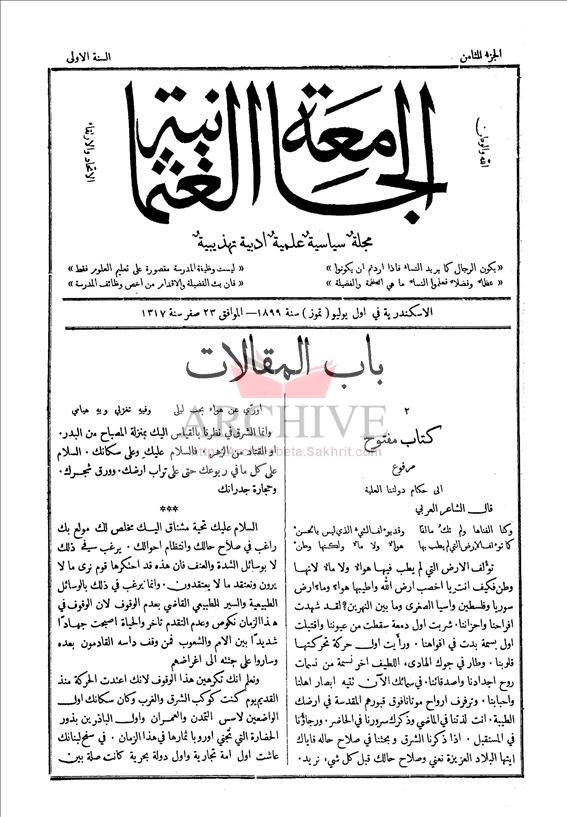 الجزء الثامن
السنة الاولى
الجامعة العثمانية
الله والوطن
الاتحاد والارتقاء
مجلة سياسية علمية ادبية تهذيبية
« يكون الرجال كما يريد النساء فاذا اردتم ان يكونوا »
« عظماء وفضلاء فعلموا النساء ما هي العظمة والفضيلة »
« ليست وظيفة المدرسة مقصورة على تعليم العلوم فقط »
« فان بث الفضيلة والاقدام من اخص وظائف المدرسة »
الاسكندرية في اول يوليو ( تموز ) سنة ١٨٩٩ — الموافق ٢٣ صفر سنة ١٣١٧
باب المقالات
٢
كتاب مفتوح
مرفوع
الى حكام دولتنا العلية
قال الشاعر العربي
وكنا الفناها ولم تك مألفا وقد يولف الشيء الذي ليس بالحسن
كما تولف الارض التي لم يطب بها هواء ولا ماء ولكنها وطن
تؤلف الارض التي لم يطب فيها هواء ولا ماء لانها
وطن فكيف انت يا اخصب ارض الله واطيبها هواء وماء ارض
سوريا وفلسطين واسيا الصغرى وما بين النهرين? لقد شهدت
افراحنا واحزاننا. شربت اول دمعة سقطت من عيوننا واقتبلت
اول بسمة بدت في افواهنا. ورأيت اول حركة تحركتها
قلوبنا. وطار في جوك الهادىء اللطيف اخر نسمة من نسمات
روح اجدادنا واصدقائنا. في سمائك الآن تتيه ابصار اهلنا
واحبابنا. وترفرف ارواح موتانا فوق قبورهم المقدسة في ارضك
الطيبة. انت لذتنا في الماضي وذكرك سرورنا في الحاضر. ورجاؤنا
في المستقبل. اذا ذكرنا الشرق وبحثنا في صلاح حاله فاياك
ايتها البلاد العزيزة نعني وصلاح حالك قبل كل شيء نريد.
اوري عن هواء بحب ليلى وفيه تغزلي وبه هيامي
وانما الشرق في نظرنا بالقياس اليك بمنزلة المصباح من البدر.
او القتاد من الزهر. فالسلام عليك وعلى سكانك. السلام
على كل ما في ربوعك حتى على تراب ارضك. وورق شجرك.
وحجارة جدرانك
***
السلام عليك تحية مشتاق اليك مخلص لك مولع بك
راغب في صلاح حالك وانتظام احوالك. يرغب في ذلك
لا بوسائل الشدة والعنف فان هذه قد احتكرها قوم نرى ما لا
يرون ونعتقد ما لا يعتقدون. وانما يرغب في ذلك بالوسائل
الطبيعية والسير الطبيعي القاضي بعدم الوقوف لان الوقوف في
هذا الزمان نكوص وعدم التقدم تأخر والحياة اصبحت جهادًا
شديدًا بين الامم والشعوب فمن وقف داسه القادمون بعده
وساروا على جثته الى اغراضهم
ونعلم انك تكرهين هذا الوقوف لانك اعتدت الحركة منذ
القديم يوم كنت كوكب الشرق والغرب وكان سكانك اول
الواضعين لاسس التمدن والعمران واول الباذرين بذور
الحضارة التي تجني اوروبا ثمارها في هذا الزمان. في سفح لبنانك
عاشت اول امة تجارية واول دولة بحرية كانت صلة بين
ARCHIVE